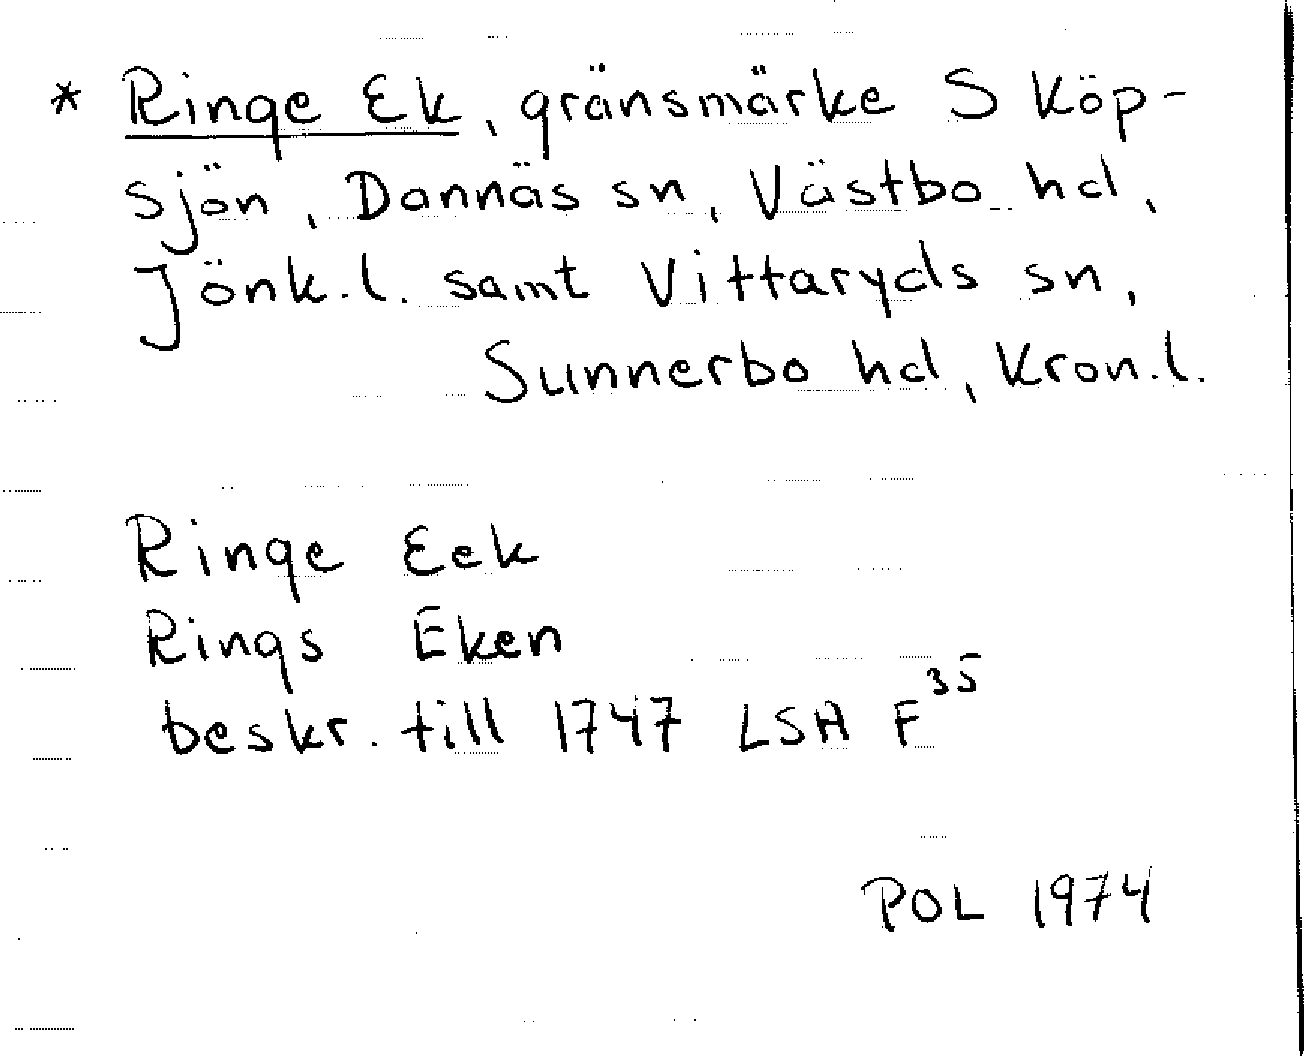 * Ringe Ek, gränsmärke S Köp-
sjön, Dannäs sn, Västbo hd,
Jönk.l. samt Vittaryds sn,
Sunnerbo hd, Kron.l.
Ringe Eek
Rings Eken
beskr. till 1747 LSA F 35
POL 1974